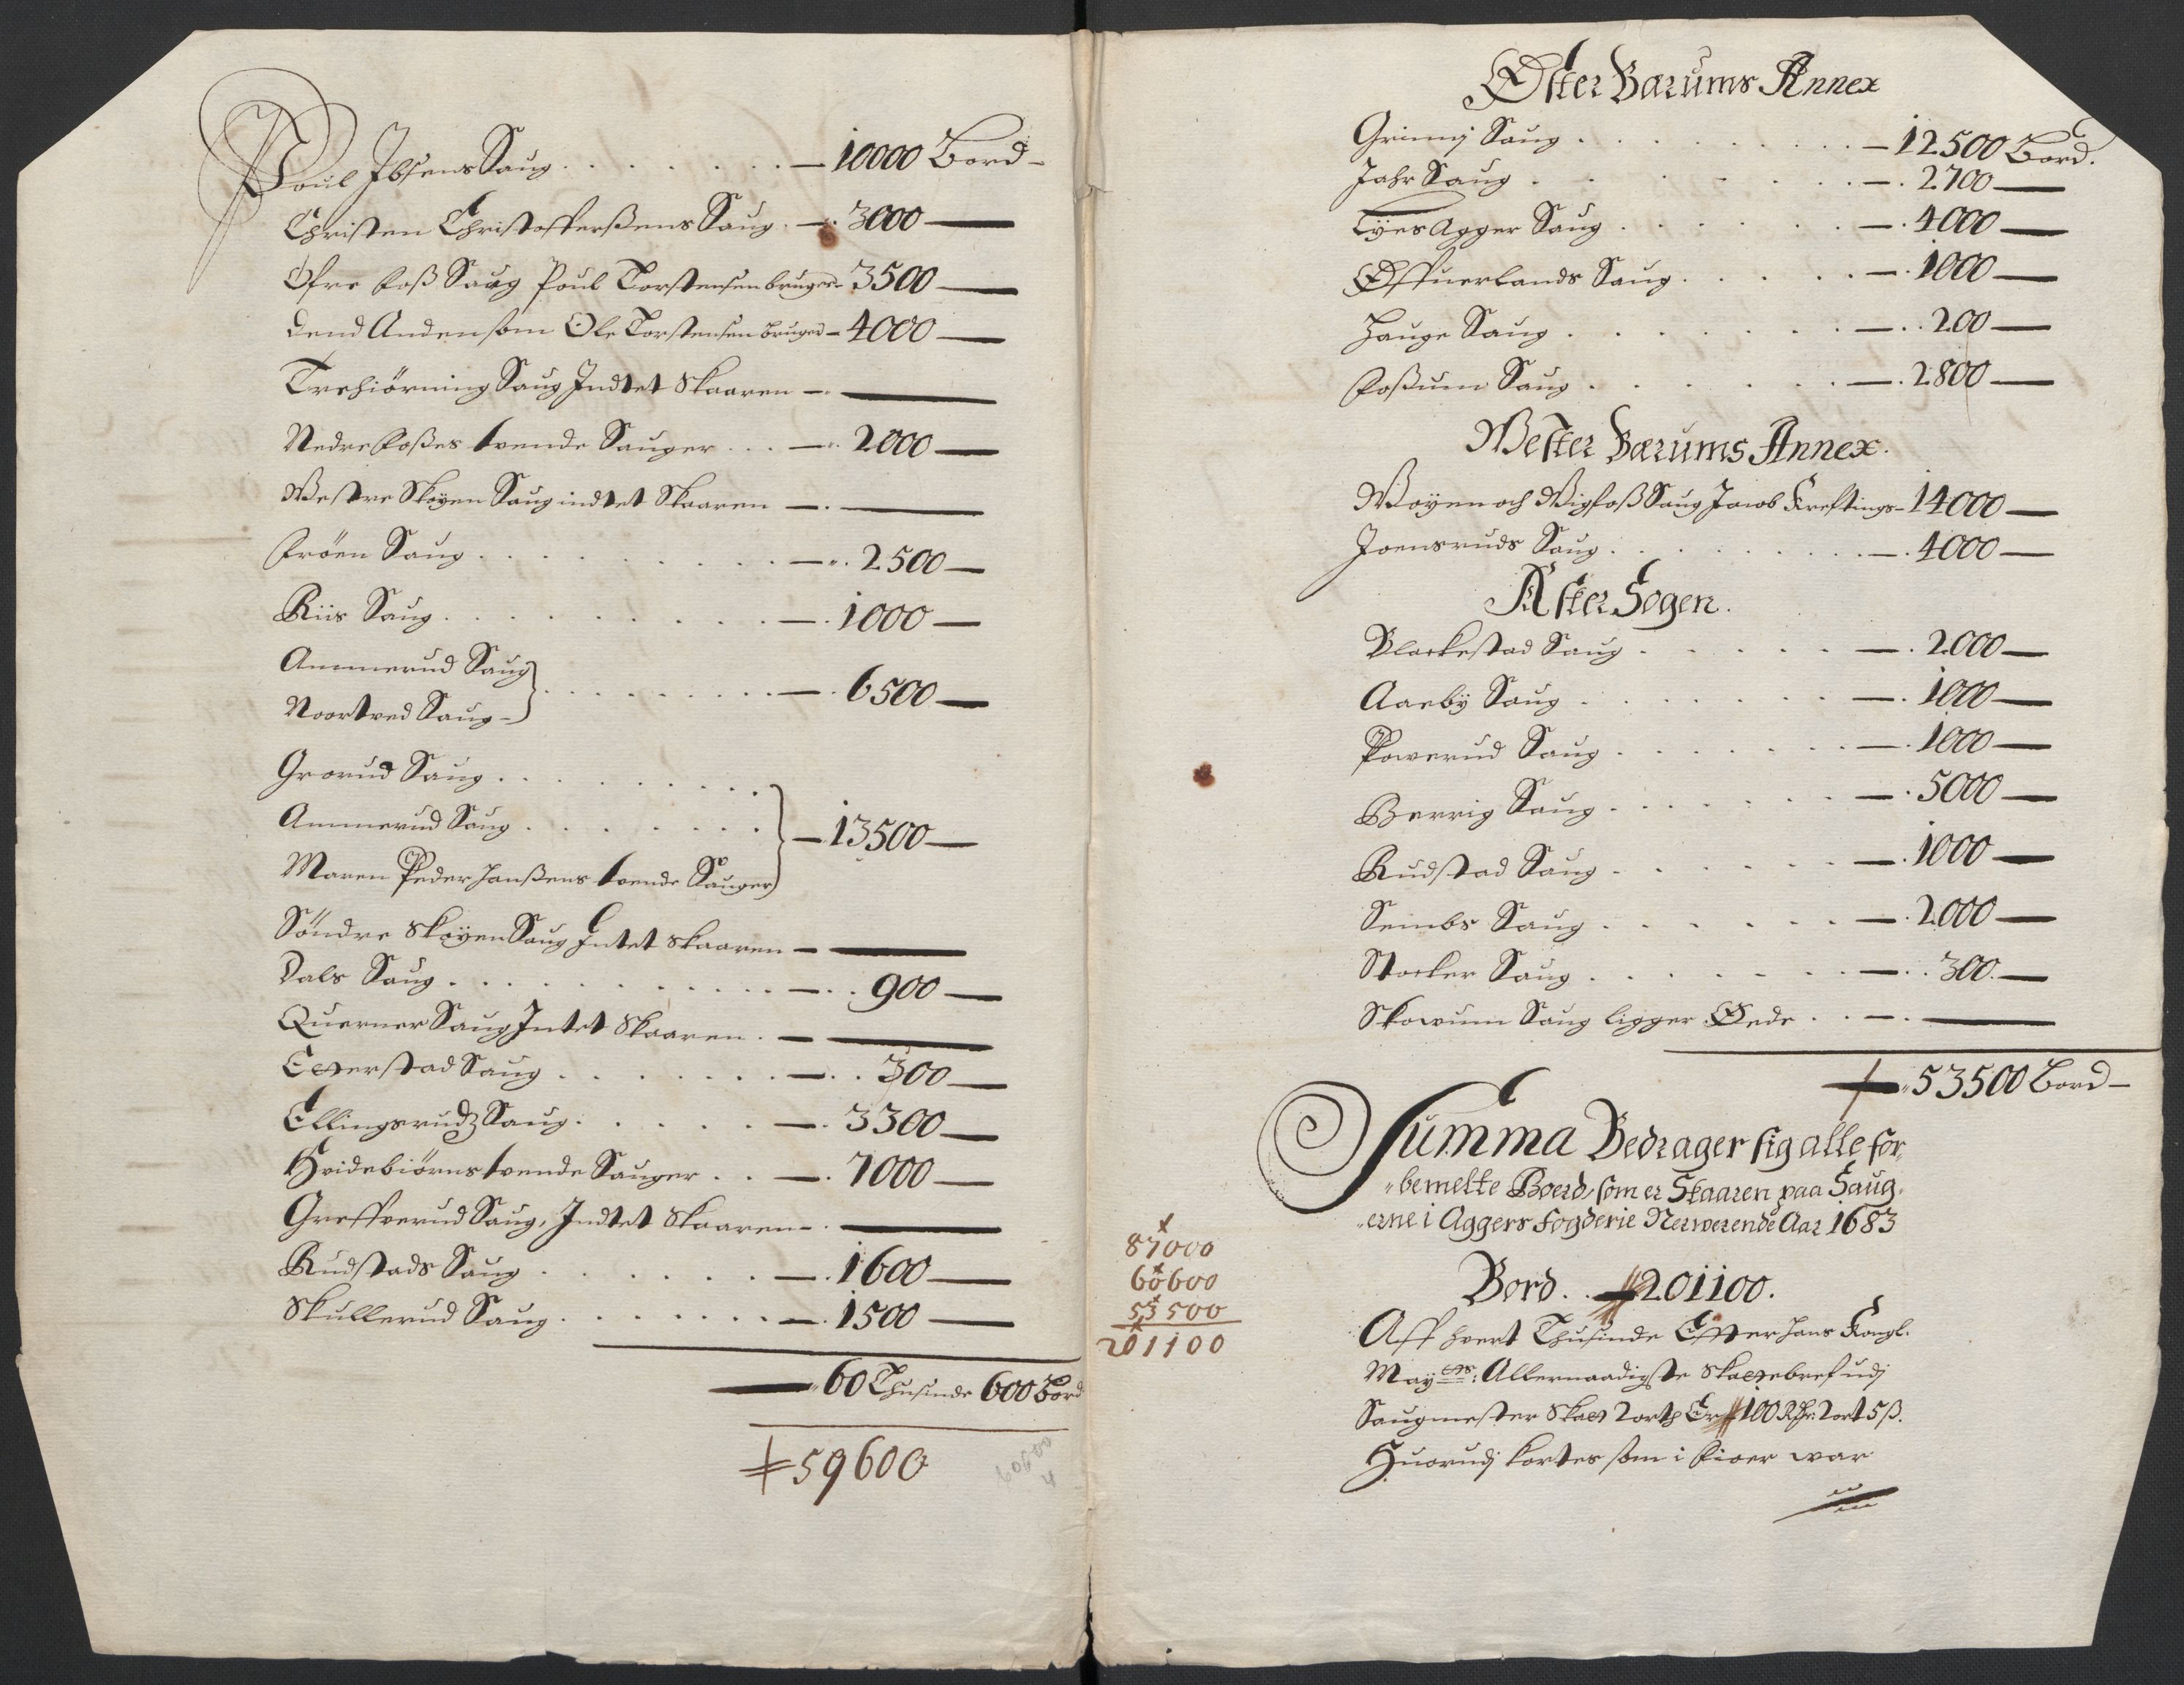 Poul Ibsens Saug . . . . . . . — 10000 Bord —
Christen Christoffersens Saug . — 3000 —
Øfre Foß Saug Poul Torstensen bruger — 3500 —
Dend Anden som Ole Torstensen bruger — 4000 —
Trehiörning Saug Indtet Skaaren — —
Nedre Foßes tvende Sauger . . . — 2000 —
Westre Skøyen Saug indtet Skaaren — —
Fröen Saug . . . . . . . — 2500 —
Riis Saug . . . . . . . — 1000 —
Ammerud Saug
Noortved Saug — } . . . . . . — 6500 —
Grorud Saug . . . . . .
Ammerud Saug . . . . . . } — 13500 —
Maren Peder Janßens tvende Sauger
Söndre Skøyen Saug Intet Skaaren — —
Dals Saug . . . . . . . — 900 —
Querner Saug Intet Skaaren . — —
Etterstad Saug . . . . . . — 300 —
Ellingsrudz Saug . . . . . — 3300 —
Hvidebiörns tvende Sauger . . — 7000 —
Greffverud Saug, Indtet Skaaren — —
Rudstads Saug . . . . . . — 1600 —
Skullerud Saug . . . . . . — 1500 —
— 60 Thusinde 600 Bord
59600
60600
4
Øster Bærums Annex
Grinnj Saug . . . . . . . — 12500 Bord.
Jahr Saug . . . . . . . — 2700 —
Lyes Agger Saug . . . . . — 4000 —
Øffuerlands Saug . . . . . — 1000 —
Hauge Saug . . . . . . — 200 —
Foßum Saug . . . . . . — 2800 —
Wester Bærums Annex.
Wøyen och Wigfoß Saug Jacob Kreftings — 14000 —
Joensruds Saug . . . . . . — 4000 —
Asker Sogen.
Blackestad Saug . . . . . — 2000 —
Aarby Saug . . . . . . — 1000 —
Powerud Saug . . . . . . — 1000 —
Berrig Saug . . . . . . — 5000 —
Rudstad Saug . . . . . . — 1000 —
Sembs Saug . . . . . . — 2000 —
Stocker Saug . . . . . . — 300 —
Skowum Saug ligger Øede . . — —
— 53500 Bord —
Summa Bedrager sig alle for,,
,,bemelte Boerd, som er Skaaren paa Saug,,
,,erne i Aggers Fogderie Nerwerende Aar 1683
Bord . . 201100.
87000
60600
53500
201100
Aff hvert Thusinde Effter Hans Kongl.
Mayts: Allernaadigste Skattebref udj
Saugmester Skatt Er 100 Rdr 1 ort 5 ß.
Huorudj kortes som i Fioer war